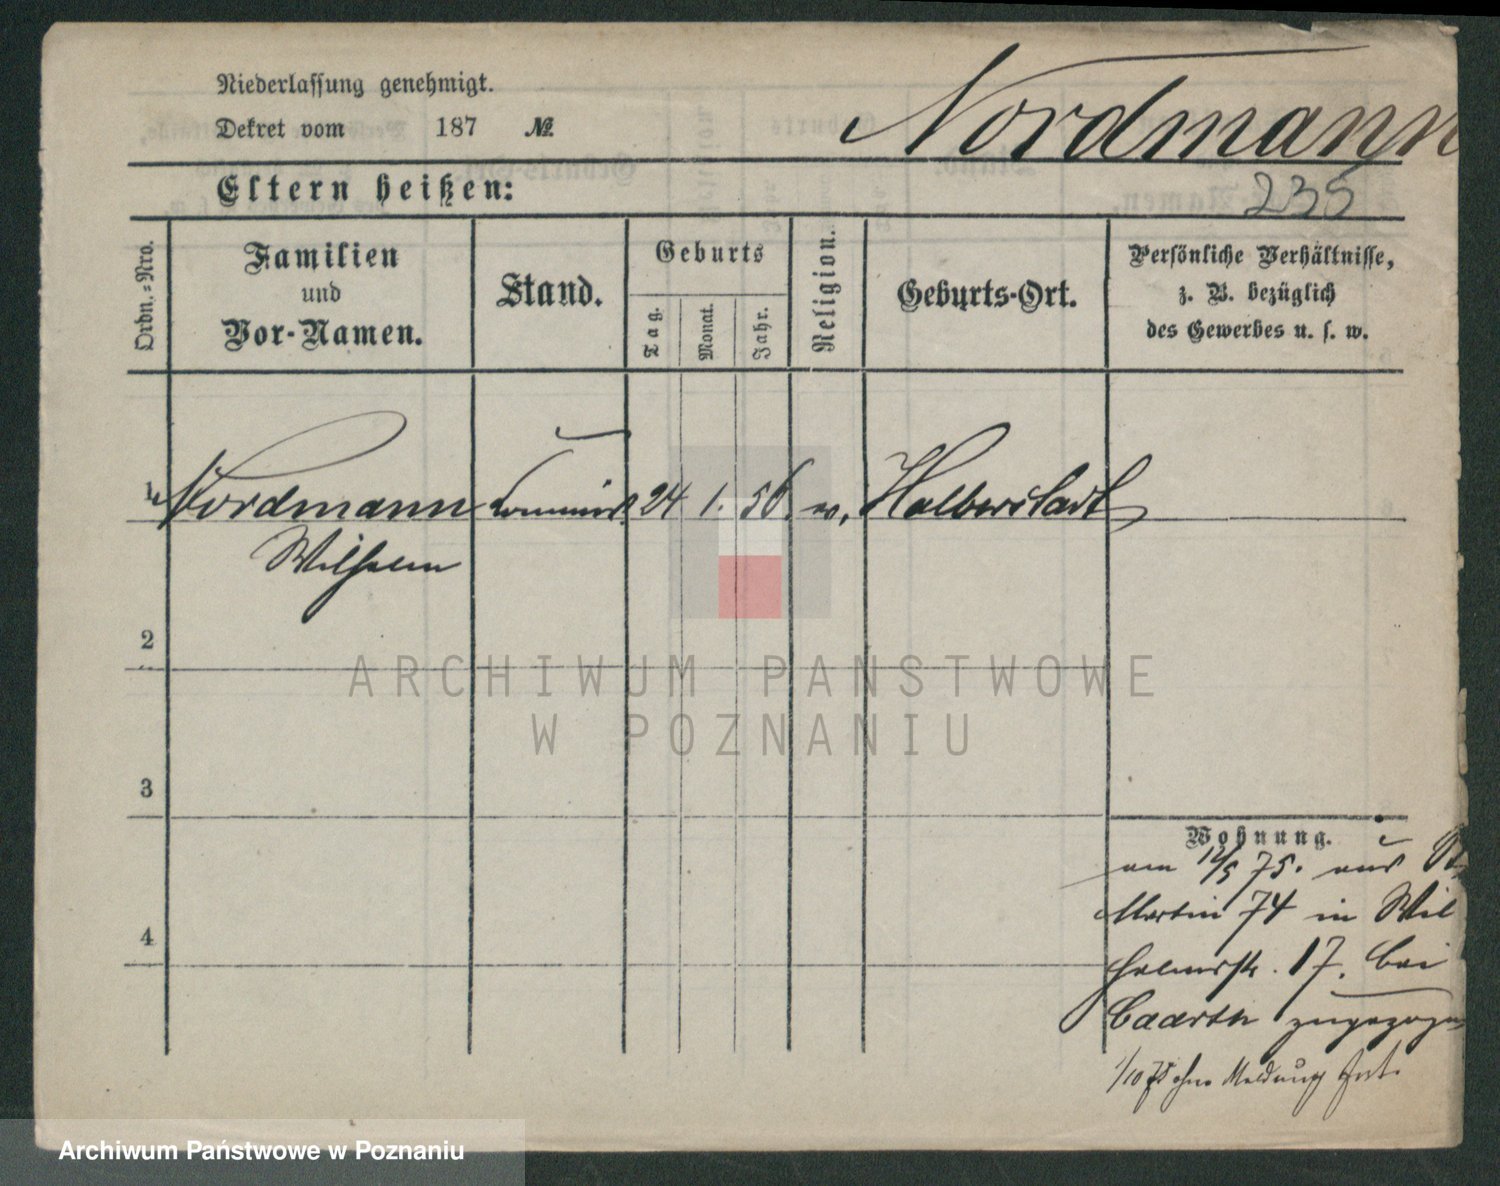 Niederlassung genehmigt.
Dekret vom 187 №
Nordmann
Eltern heißen:
235
Ordn.=Nro.
Familien
und
Vor-Namen.
Stand.
Geburts
Tag.
Monat.
Jahr.
Religion.
Geburts-Ort.
Persönliche Verhältnisse,
z. B. bezüglich
des Gewerbes u. s. w.
1 Nordmann 24 1. 56. ev. Halberstadt
Wilhelm
2
3
4
Wohnung.
am 12/5 75. aus St
Martin 74 in Wil
helmstr. 17. bei
zugezogen
1/10 75 ohne Meldung fort.
ARCHIWUM PAŃSTWOWE
W POZNANIU
Archiwum Państwowe w Poznaniu